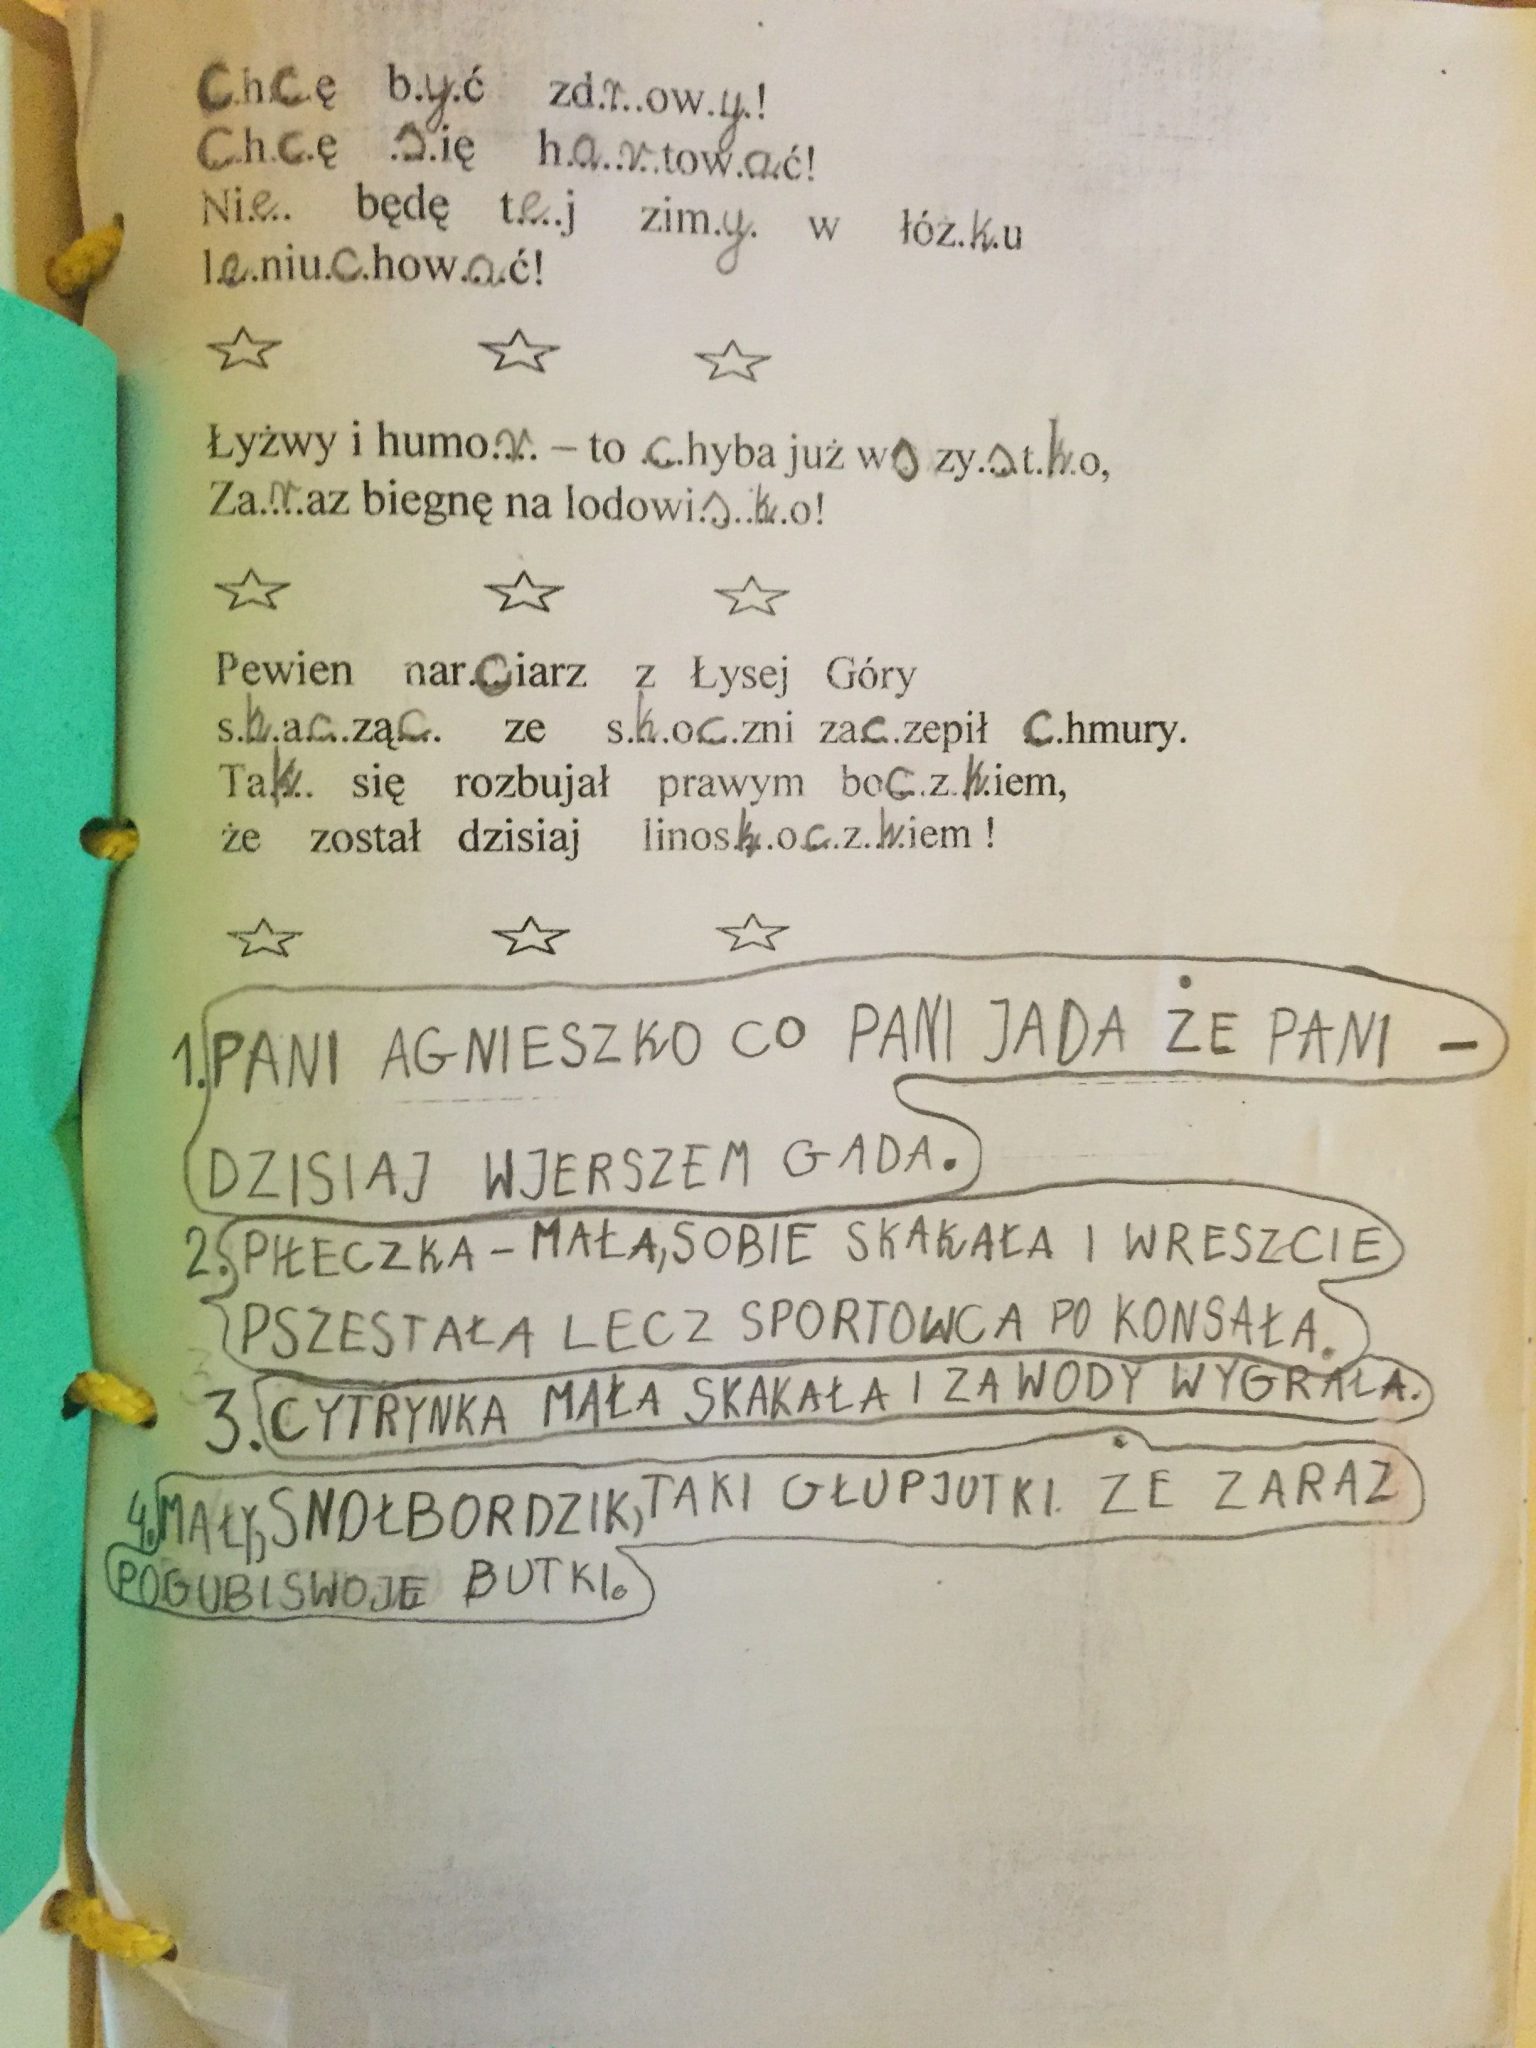 Chcę być zdrowy!
Chcę się hartować!
Nie będę tej zimy w łóżku
leniuchować!
Łyżwy i humor – to chyba już wszystko,
Zaraz biegnę na lodowisko!
Pewien narciarz z Łysej Góry
skacząc ze skoczni zaczepił Chmury.
Tak się rozbujał prawym boczkiem,
że został dzisiaj linoskoczkiem !
1. PANI AGNIESZKO CO PANI JADA ŻE PANI –
DZISIAJ WJERSZEM GADA.
2. PIŁECZKA – MAŁA, SOBIE SKAKAŁA I WRESZCIE
PSZESTAŁA LECZ SPORTOWCA PO KONSAŁA.
3. CYTRYNKA MAŁA SKAKAŁA I ZAWODY WYGRAŁA.
4. MAŁY, SNOŁBORDZIK, TAKI GŁUPJUTKI. ŻE ZARAZ
POGUBI SWOJE BUTKI.